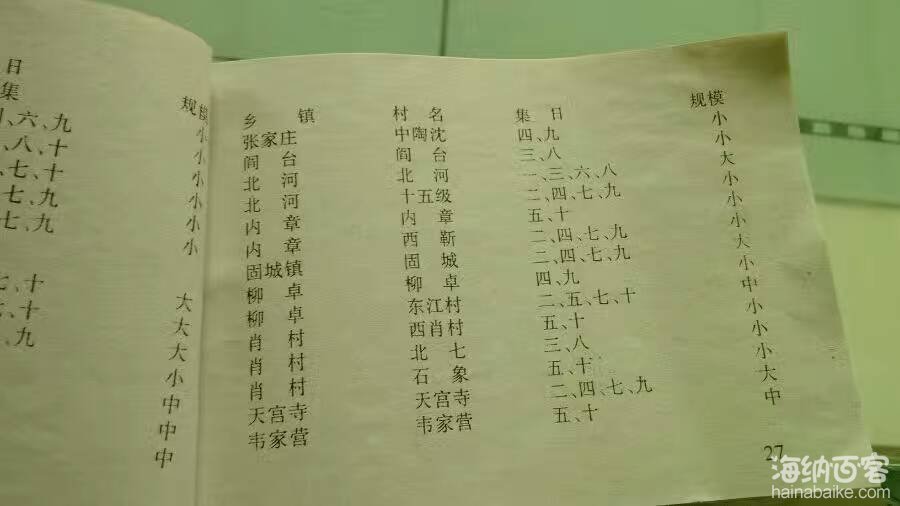 集 日 规模
、六、九 小
、八、十 小
、七、十 小
、七、九 小
七、九 小
小
七、十 大
七、十 大
、九 大
小
中
中
中
乡 镇 村 名 集 日 规模
张家庄 中陶沈 四、九 小
阎 台 阎 台 三、八 小
北 河 北 河 一、三、六、八 大
北 河 十五级 二、四、七、九 小
内 章 内 章 五、十 小
内 章 西 靳 二、四、七、九 小
固城镇 固 城 二、四、七、九 大
柳 卓 柳 卓 四、九 小
柳 卓 东江村 二、五、七、十 中
肖 村 西肖村 五、十 小
肖 村 北 七 三、八 小
肖 村 石 象 五、十 小
天宫寺 天宫寺 二、四、七、九 大
韦家营 韦家营 五、十 中
27
海纳百客
hainabaike.com